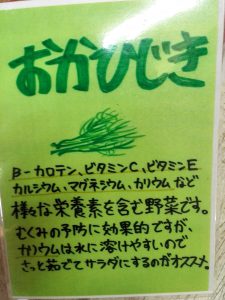 おかひじき
β-カロテン、ビタミンC、ビタミンE
カルシウム、マグネシウム、カリウムなど
様々な栄養素を含む野菜です。
むくみの予防に効果的ですが、
カリウムは水に溶けやすいので
さっと茹でてサラダにするのがオススメ。